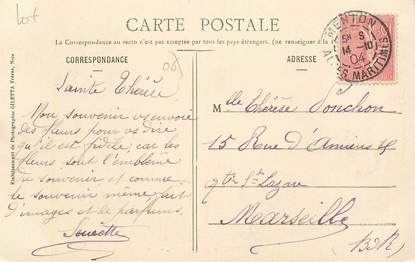 Lot
CARTE POSTALE
La Correspondance au recto n'est pas acceptée par tous les pays étrangers. (Se renseigner à la
CORRESPONDANCE
ADRESSE
MENTON
5H S
14 -10
04
ALPES MARITIMES
06
Sainte Thérèse
Mon souvenir vs envoie
des fleurs pour vs dire
qu'il est fidèle, car les
fleurs sont l'emblème
du souvenir et comme
le souvenir même fait
d'images et de parfums.
Mlle Thérèse Ponchon
15 Rue d'Amiens
qtr St Lazare
Marseille
(BDR)
Etablissement de Photographie GILETTA Frères, Nice